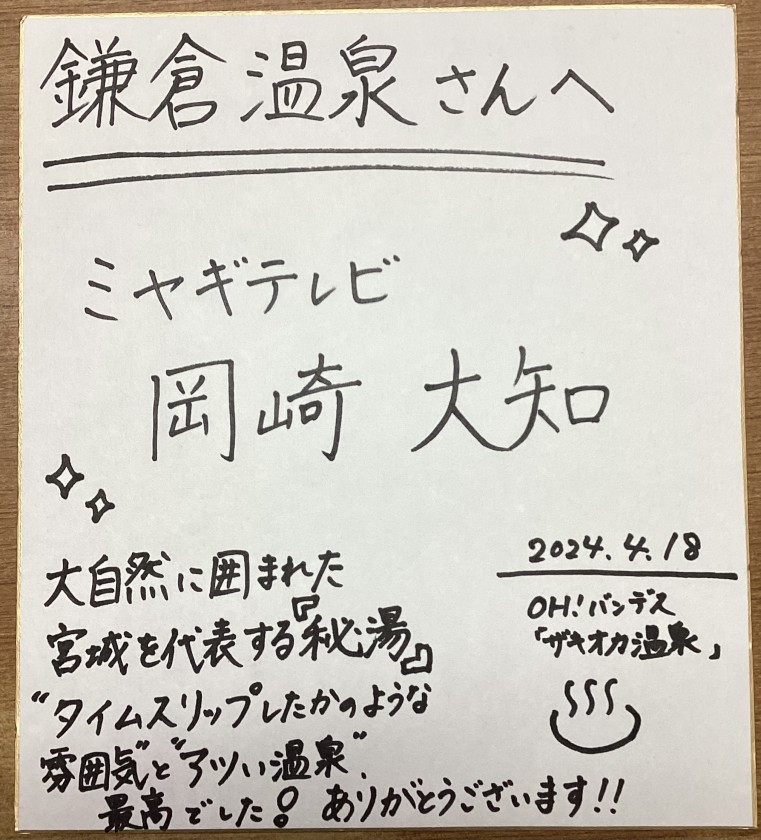 鎌倉温泉さんへ
ミヤギテレビ
岡崎 大知
2024.4.18
OH!バンデス
「ザキオカ温泉」
大自然に囲まれた
宮城を代表する『秘湯』
“タイムスリップしたかのような
雰囲気”と“アツい温泉”.
最高でした! ありがとうございます!!